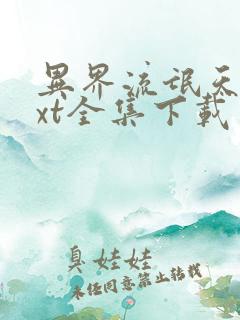 異界流氓天
xt全集下載
臭娃娃
未经同意禁止转载